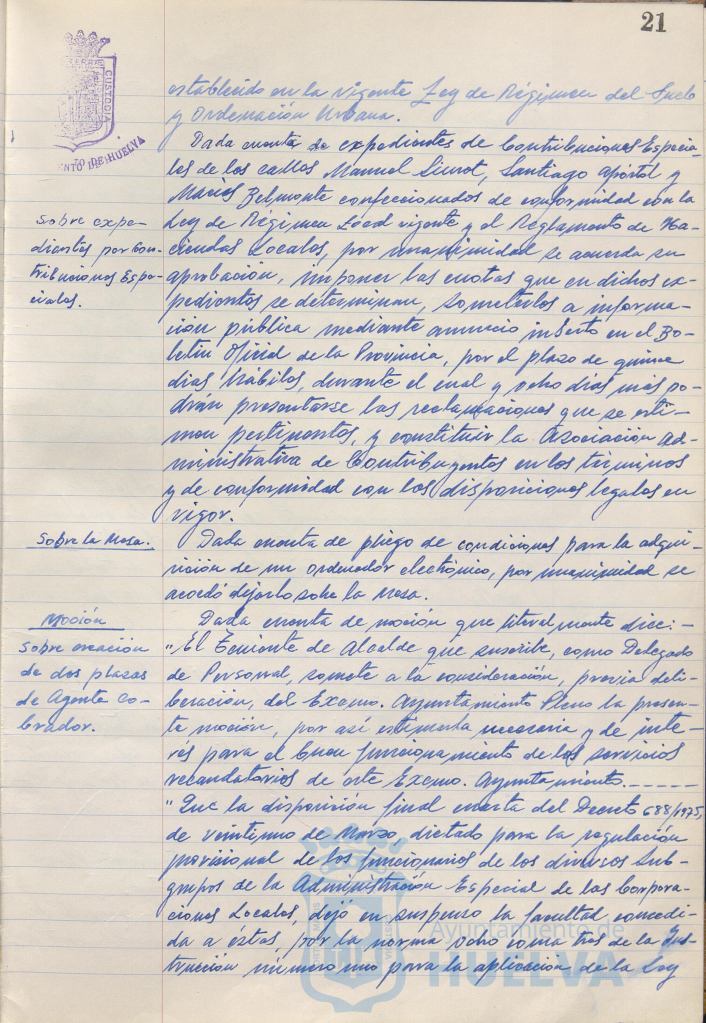 21
establecido en la vigente Ley de Régimen del Suelo
y Ordenación Urbana.
Dada cuenta de expedientes de Contribuciones Especia-
les de las calles Manuel Siurot, Santiago Apóstol y
Macías Belmonte confeccionados de conformidad con la
Sobre expe-
dientes por Con-
tribuciones Espe-
ciales.
Ley de Régimen Local vigente y el Reglamento de Ha-
ciendas Locales, por unanimidad se acuerda su
aprobación, imponer las cuotas que en dichos ex-
pedientes se determinan, someterlos a informa-
ción pública mediante anuncio inserto en el Bo-
letín Oficial de la Provincia, por el plazo de quince
días hábiles, durante el cual y ocho días más po-
drán presentarse las reclamaciones que se esti-
men pertinentes, y constituir la Asociación Ad-
ministrativa de Contribuyentes en los términos
y de conformidad con las disposiciones legales en
vigor.
Sobre la Mesa.
Dada cuenta de pliego de condiciones para la adqui-
sición de un ordenador electrónico, por unanimidad se
acordó dejarlo sobre la Mesa.
Moción
Sobre creación
de dos plazas
de Agente Co-
brador.
Dada cuenta de moción que literalmente dice:-
"El Teniente de Alcalde que suscribe, como Delegado
de Personal, somete a la consideración, previa deli-
beración, del Excmo. Ayuntamiento Pleno la presen-
te moción, por así estimarla necesaria y de inte-
rés para el buen funcionamiento de los servicios
recaudatorios de este Excmo. Ayuntamiento.-----
"Que la disposición final cuarta del Decreto 688/1975,
de veintiuno de Marzo, dictado para la regulación
provisional de los funcionarios de los diversos Sub-
grupos de la Administración Especial de las Corpora-
ciones Locales, dejó en suspenso la facultad concedi-
da a éstas, por la norma ocho coma tres de la Ins-
trucción número uno para la aplicación de la Ley
CUSTODIA
NTO DE HUELVA
Ayuntamiento de
HUELVA